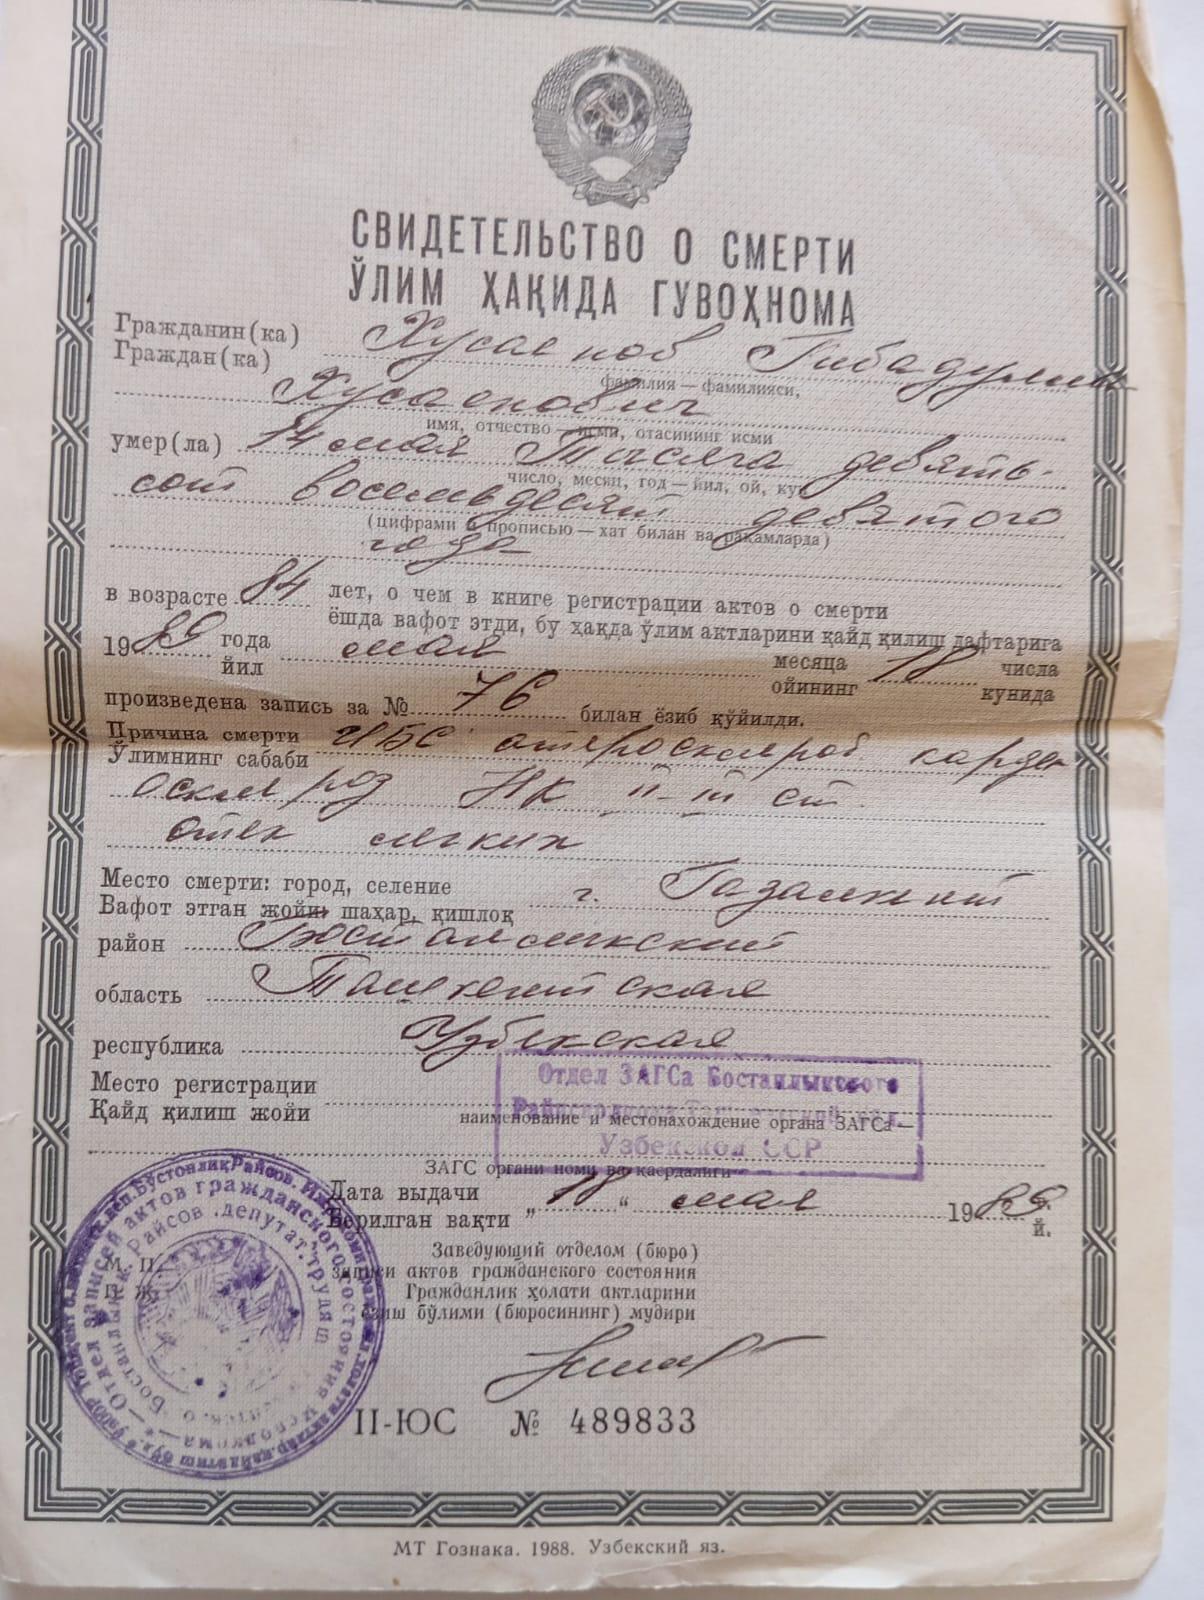 СВИДЕТЕЛЬСТВО О СМЕРТИ
ЎЛИМ ҲАҚИДА ГУВОҲНОМА
Гражданин(ка) Хусаенов Гибадулин
Граждан(ка)
фамилия — фамилияси,
Хусаенович
имя, отчество — исми, отасининг исми
умер(ла) 14 мая Тысяча девять-
число, месяц, год — йил, ой, кун
сот восемьдесят девятого
(цифрами и прописью — хат билан ва рақамларда)
года
в возрасте 84 лет, о чем в книге регистрации актов о смерти
ёшда вафот этди, бу ҳақда ўлим актларини қайд қилиш дафтарига
1989 года мая месяца 18 числа
йил ойининг кунида
произведена запись за № 76 билан ёзиб қўйилди.
Причина смерти ИБС атеросклероз. кардио
Ўлимнинг сабаби
склероз НК II-III ст.
отек легких
Место смерти: город, селение г. Газалкент
Вафот этган жойи: шаҳар, қишлоқ
район Бостанлыкский
область Ташкентская
республика Узбекская
Место регистрации Отдел ЗАГСа Бостанлыкского
Қайд қилиш жойи
Райисполкома Ташкентской обл.
наименование и местонахождение органа ЗАГСа —
Узбекской ССР
ЗАГС органи номи ва қаердалиги
Дата выдачи „18“ мая 1989 г.
Берилган вақти й.
Заведующий отделом (бюро)
М. П. записи актов гражданского состояния
П. Ж. Гражданлик ҳолати актларини
ёзиш бўлими (бюросининг) мудири
II-ЮС № 489833
МТ Гознака. 1988. Узбекский яз.